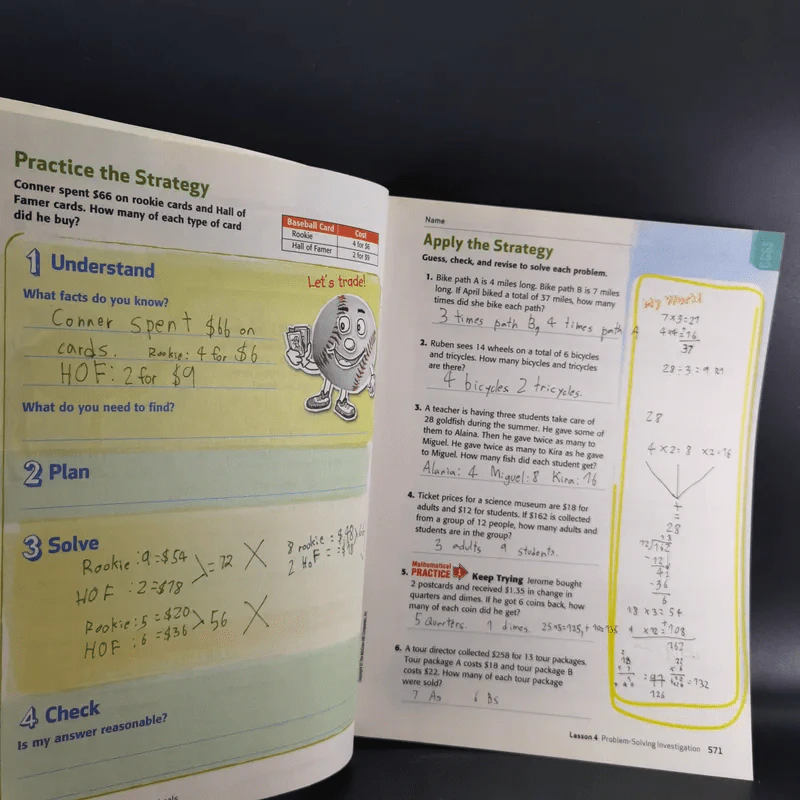 Practice the Strategy
Conner spent $66 on rookie cards and Hall of
Famer cards. How many of each type of card
did he buy?
Baseball Card Cost
Rookie 4 for $6
Hall of Famer 2 for $9
1 Understand
Let's trade!
What facts do you know?
Conner spent $66 on
cards. Rookie: 4 for $6
HOF: 2 for $9
What do you need to find?
2 Plan
3 Solve
Rookie: 9=$54
HOF: 2=$18
=72 X
8 rookie = $48
2 HoF = $18
Rookie: 5=$20
HOF: 6=$36
56 X
4 Check
Is my answer reasonable?
Name
Apply the Strategy
Guess, check, and revise to solve each problem.
1. Bike path A is 4 miles long. Bike path B is 7 miles
long. If April biked a total of 37 miles, how many
times did she bike each path?
3 times path B, 4 times path A
2. Ruben sees 14 wheels on a total of 6 bicycles
and tricycles. How many bicycles and tricycles
are there?
4 bicycles 2 tricycles.
3. A teacher is having three students take care of
28 goldfish during the summer. He gave some of
them to Alaina. Then he gave twice as many to
Miguel. He gave twice as many to Kira as he gave
to Miguel. How many fish did each student get?
Alania: 4 Miguel: 8 Kira: 16
4. Ticket prices for a science museum are $18 for
adults and $12 for students. If $162 is collected
from a group of 12 people, how many adults and
students are in the group?
3 adults 9 students.
5. Mathematical PRACTICE 1 Keep Trying Jerome bought
2 postcards and received $1.35 in change in
quarters and dimes. If he got 6 coins back, how
many of each coin did he get?
5 Quarters. 1 dimes.
6. A tour director collected $258 for 13 tour packages.
Tour package A costs $18 and tour package B
costs $22. How many of each tour package
were sold?
7 As 6 Bs
My World
7x3=21
4x4=16
37
28÷3=9
28
4x2=8 x2=16
+
=
28
12 162
18x3=54
x12=108
162
126
=132
Lesson 4 Problem-Solving Investigation 571